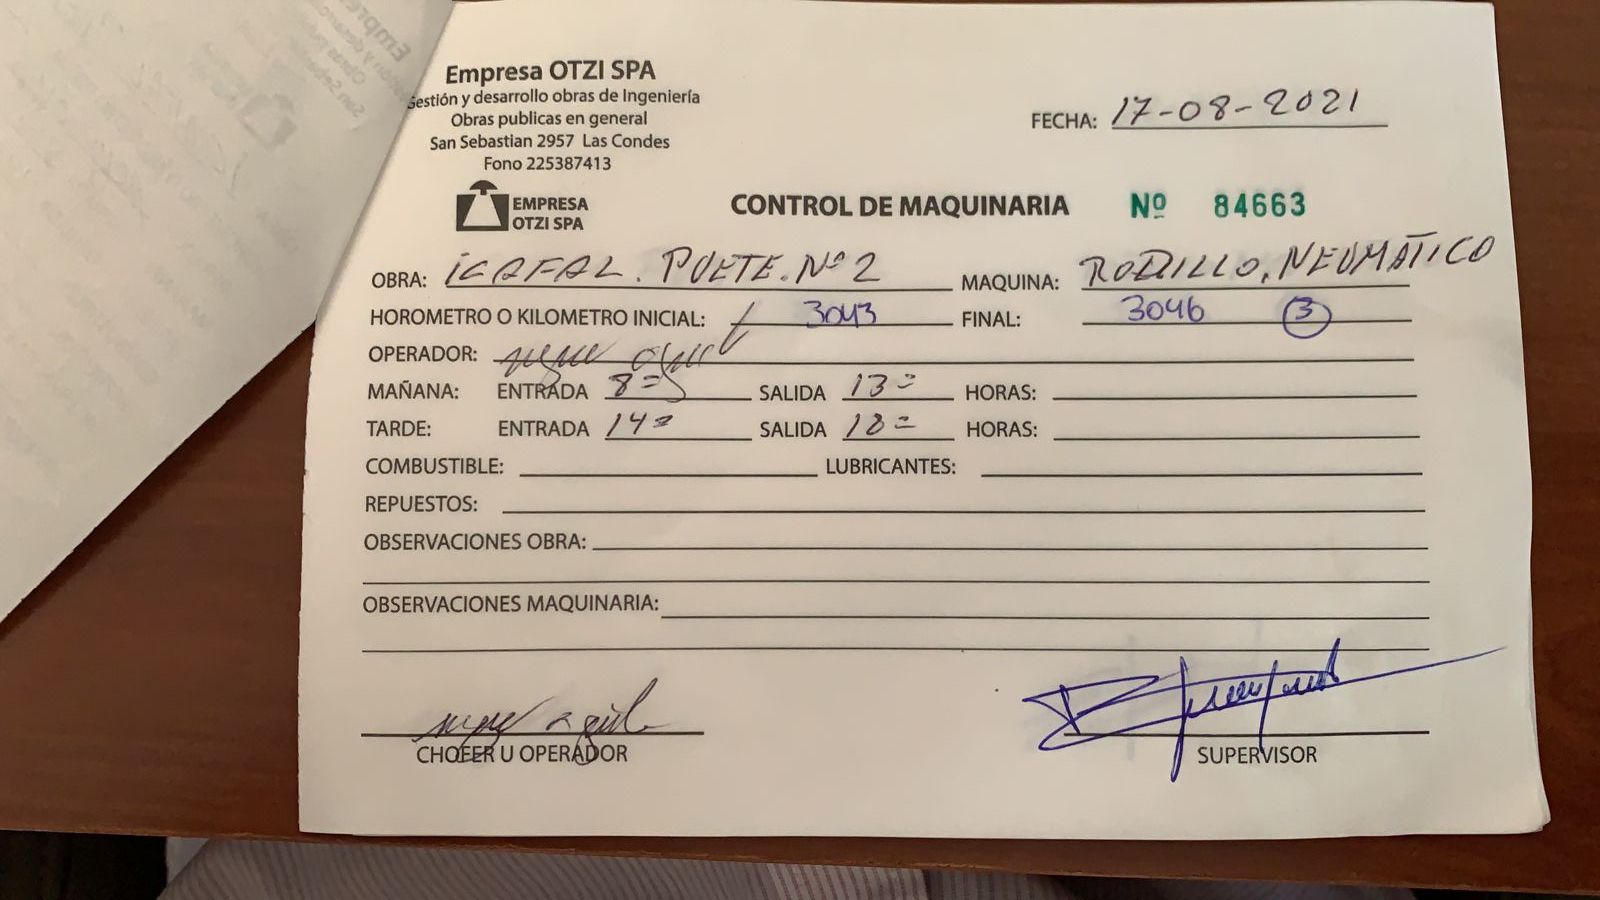 Empresa OTZI SPA
Gestión y desarrollo obras de Ingeniería
Obras publicas en general
San Sebastian 2957 Las Condes
Fono 225387413
FECHA: 17-08-2021
EMPRESA
OTZI SPA
CONTROL DE MAQUINARIA Nº 84663
OBRA: ICAFAL. PUETE. Nº 2 MAQUINA: RODILLO, NEUMÁTICO
HOROMETRO O KILOMETRO INICIAL: 3043 FINAL: 3046 3
OPERADOR:
MAÑANA: ENTRADA 8= SALIDA 13= HORAS:
TARDE: ENTRADA 14= SALIDA 18= HORAS:
COMBUSTIBLE: LUBRICANTES:
REPUESTOS:
OBSERVACIONES OBRA:
OBSERVACIONES MAQUINARIA:
CHOFER U OPERADOR SUPERVISOR